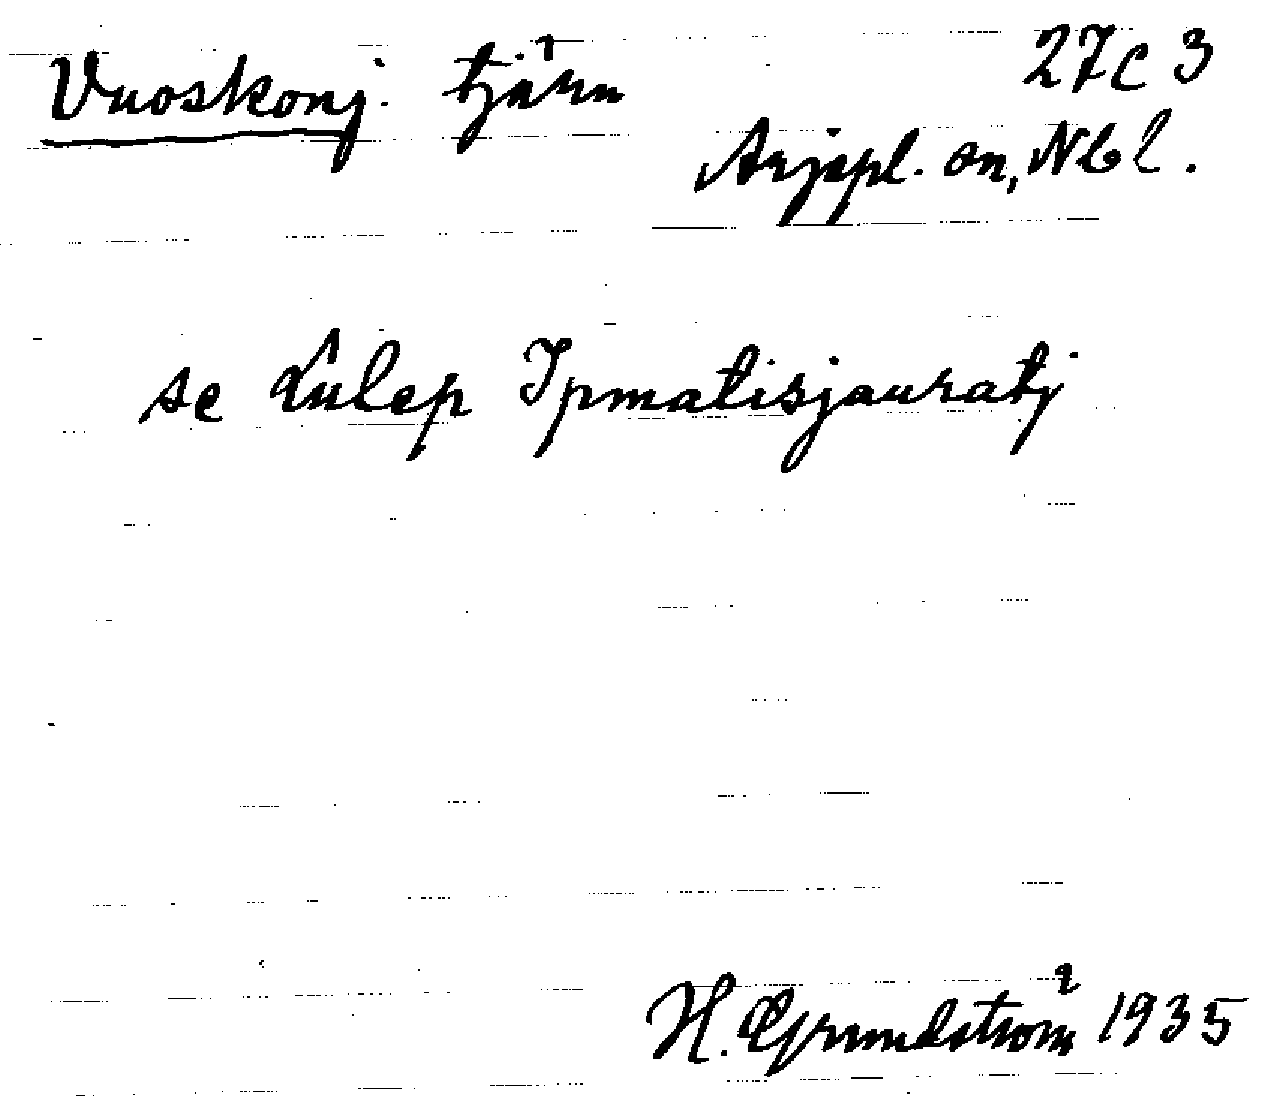 Vuoskonj. tjärn 27C 3
Arjepl. sn, Nbl.
se Lulep Ipmatisjauratj
H. Grundström 1935